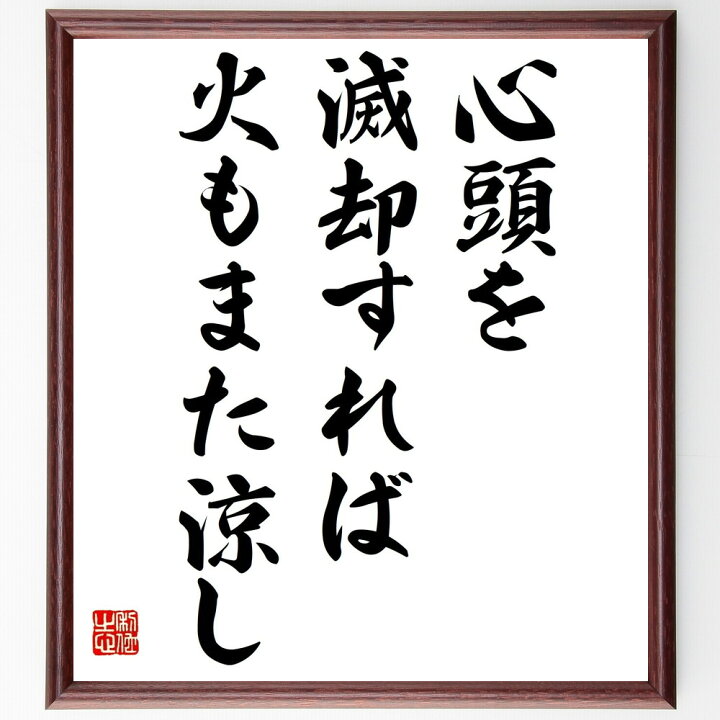 心頭を
滅却すれば
火もまた涼し